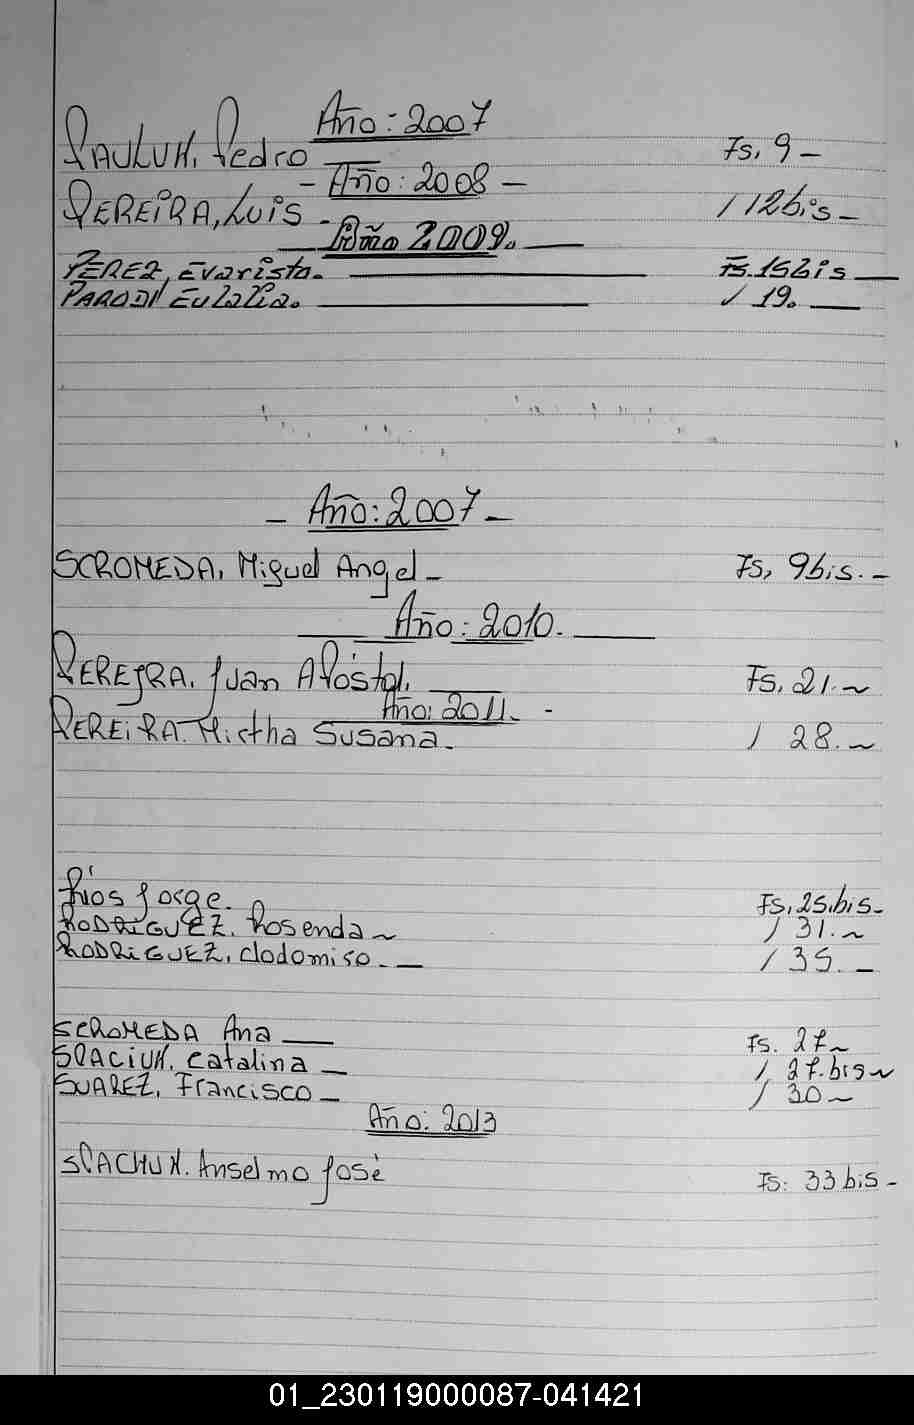 Año: 2007
PAULUK, Pedro Fs, 9 -
- Año: 2008 -
PEREIRA, Luis - / 12bis -
Año 2009.
PEREZ, Evaristo. Fs. 15bis
PARODI Eulalia. / 19.
- Año: 2007 -
SCROMEDA, Miguel Angel - Fs, 9bis. -
Año: 2010.
PEREIRA, Juan Apóstol. Fs, 21. ~
Año: 2011. -
PEREIRA Mirtha Susana. / 28. ~
Ríos Jorge. Fs, 25.bis -
RODRIGUEZ, Rosenda ~ / 31. ~
RODRIGUEZ, Clodomiro. - / 35. -
SCROMEDA Ana Fs. 27 ~
SPACIUK, Catalina - / 27.bis ~
SUAREZ, Francisco - / 30 ~
Año: 2013
SPACHUK. Anselmo José Fs: 33 bis -
01_230119000087-041421